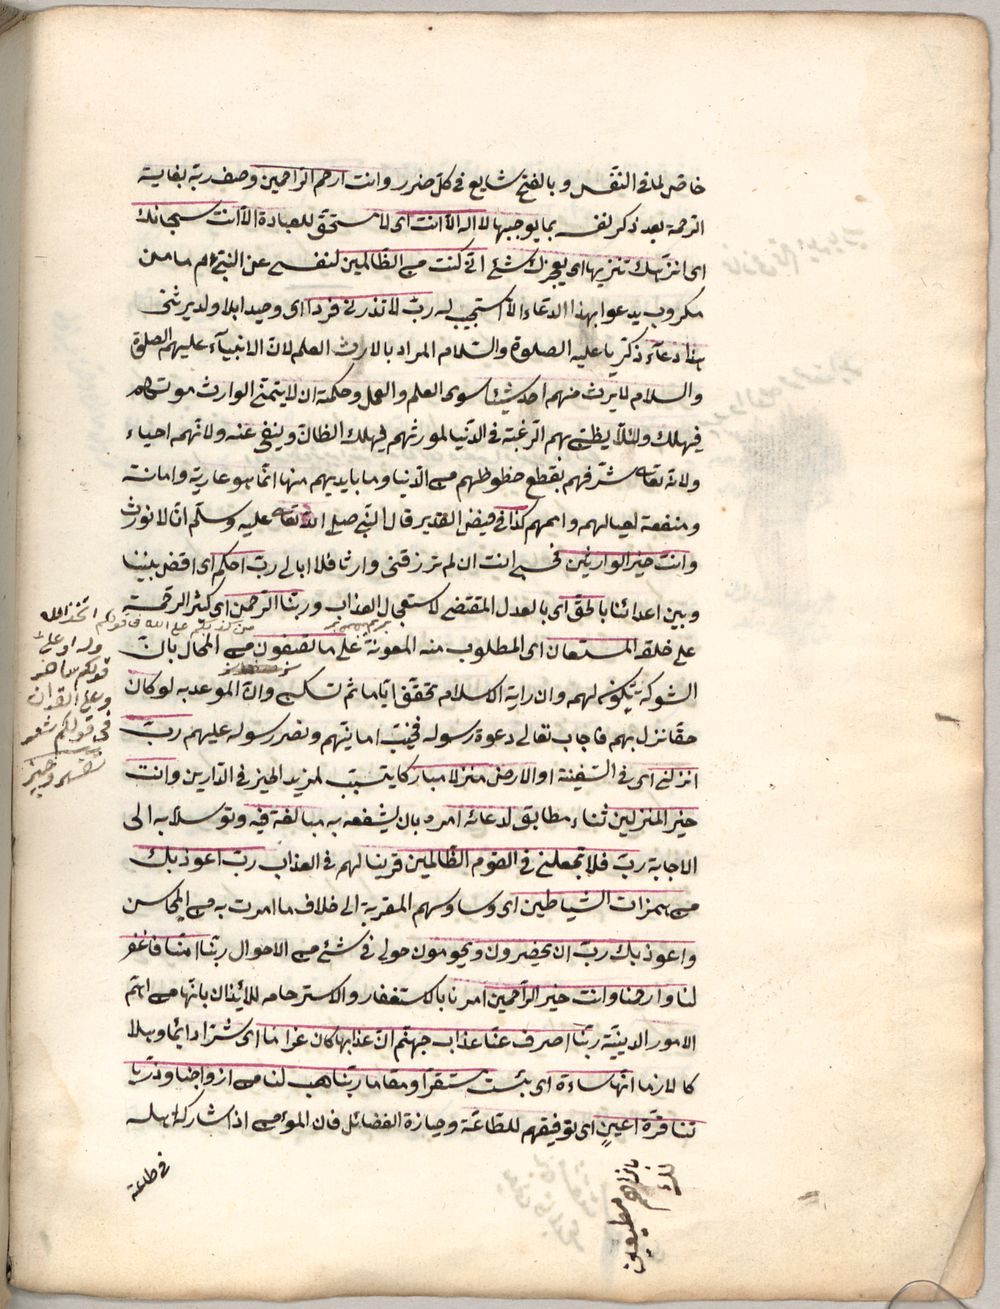 خاص لما فى النفس وبالفتح شايع فى كل ضرر وانت ارحم الراحمين وصف ربه بغاية
الرحمة بعد ذكر نفسه بما يوجبها لا اله الا انت اى لا مستحق للعبادة الا انت سبحانك
اى انزهك تنزيها اى يعجزك شئ انى كنت من الظالمين لنفسى عن النبى عم ما من
مكروب يدعو بهذا الدعاء الا استجيب له رب لا تذرنى فردا اى وحيدا بلا ولد يرثنى
هذا دعاء ذكريا عليه الصلوة والسلام المراد بالارث العلم لان الانبياء عليهم الصلوة
والسلام لا يرث منهم احد شيئا سوى العلم والعمل وحكمة ان لا يتمنى الوارث موتهم
فيهلك ولئلا يظن بهم الرغبة فى الدنيا لمورثهم فيهلك الظان وينفى عنه ولانهم احياء
ولانه تعالى شرفهم بقطع حظوظهم من الدنيا وما بايديهم منها انما هو عارية وامانة
ومنفعة لعيالهم واممهم كذا فى فيض القدير قال النبى صلى الله تعالى عليه وسلم انا لا نورث
وانت خير الوارثين فحسبى انت ان لم ترزقنى وارثا فلا ابالى رب احكم اى اقض بيننا
وبين اعدائنا بالحق اى بالعدل المقتضى لاستعجال العذاب وربنا الرحمن اى كثير الرحمة
على خلقه المستعان اى المطلوب منه المعونة على ما تصفون من المحال بان
الشوكة تكون لهم وان راية الاسلام تخفق اياما ثم تسكن وان الموعد به لو كان
حقا نزل بهم فاجاب تعالى دعوة رسوله فخيب امانيهم ونصر رسوله عليهم رب
انزلنى اى فى السفينة او الارض منزلا مباركا يتسبب لمزيد الخير فى الدارين وانت
خير المنزلين ثناء مطابق لدعائه امره بان يشفعه به مبالغة فيه وتوسلا به الى
الاجابة رب فلا تجعلنى فى القوم الظالمين قرينا لهم فى العذاب رب اعوذ بك
من همزات الشياطين اى وساوسهم المقربة الى خلاف ما امرت به من المحاسن
واعوذ بك رب ان يحضرون ويحومون حولى فى شئ من الاحوال ربنا امنا فاغفر
لنا وارحمنا وانت خير الراحمين امرنا بالاستغفار والاسترحام للايذان بانها من اهم
الامور الدينية ربنا اصرف عنا عذاب جهنم ان عذابها كان غراما اى شرا دائما وبلا
كا لازما انها ساءة اى بئست مستقرا ومقاما ربنا هب لنا من ازواجنا وذريا
تنا قرة اعين اى توفيقهم للطاعة وحيازة الفضائل فان المؤمن اذا شاركه اهله
فى طاعة
من كذبكم على الله فى قولكم اتخذ الله
ولدا وعلى
قولكم ساحر
وعلى القران
فى قولكم شعر